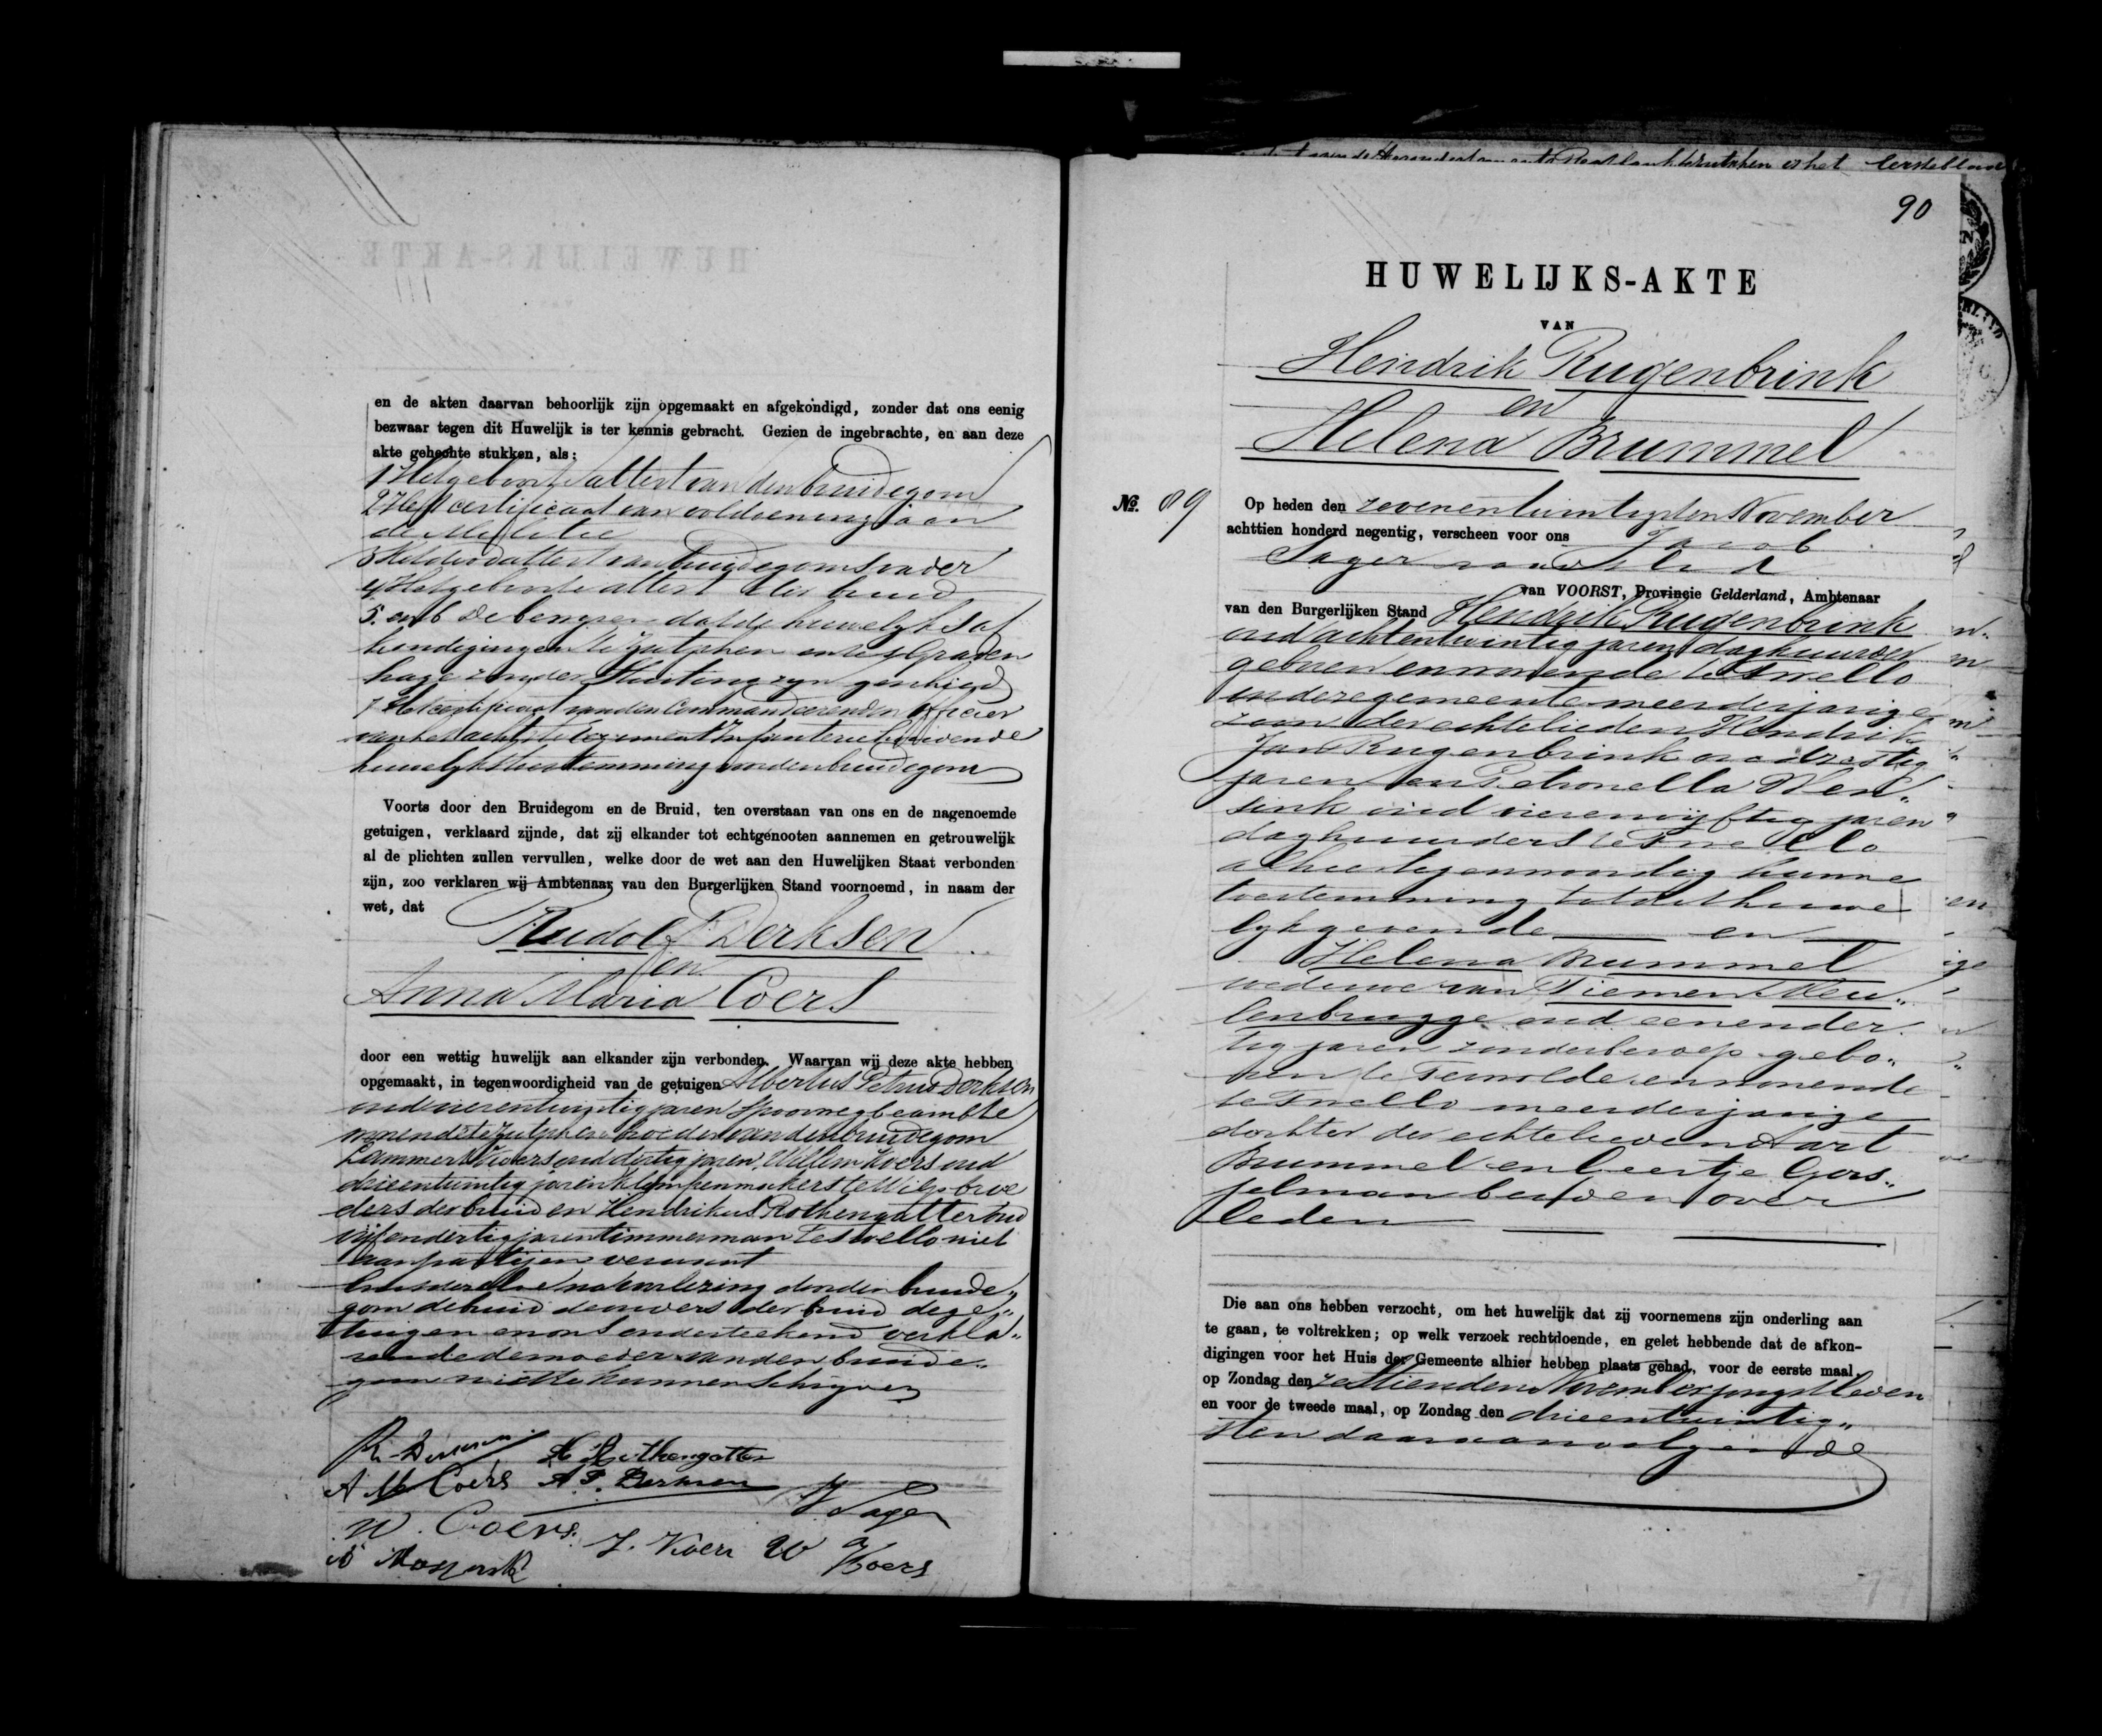 en de akten daarvan behoorlijk zijn opgemaakt en afgekondigd, zonder dat ons eenig
bezwaar tegen dit Huwelijk is ter kennis gebracht. Gezien de ingebrachte, en aan deze
akte gehechte stukken, als:
1 Het geboorte attest van den bruidegom
2 Het certificaat van voldoening aan
de Militie
3 Het dood attest van bruidegoms vader
4 Het geboorte attest der bruid
5. en 6 De bewijzen dat de huwelijks af
kondigingen te Zutphen en te s Graven
hage zonder stuiting zijn geschied
7 Het certificaat van den Commandeerenden Officier
van het achtste Regiment Infanterie houdende
huwelijkstoestemming voor den bruidegom
Voorts door den Bruidegom en de Bruid, ten overstaan van ons en de nagenoemde
getuigen, verklaard zijnde, dat zij elkander tot echtgenooten aannemen en getrouwelijk
al de plichten zullen vervullen, welke door de wet aan den Huwelijken Staat verbonden
zijn, zoo verklaren wij Ambtenaar van den Burgerlijken Stand voornoemd, in naam der
wet, dat
Rudolf Derksen
en
Anna Maria Coers
door een wettig huwelijk aan elkander zijn verbonden. Waarvan wij deze akte hebben
opgemaakt, in tegenwoordigheid van de getuigen Albertus Petrus Derksen
oud vierentwintig jaren spoorwegbeambte
wonende te Zutphen broeder van den bruidegom
Lammert Koers oud dertig jaren, Willem Koers oud
drieentwintig jaren klompenmakers te Wilp broe
ders der bruid en Hendrikus Rothengatter oud
vijfendertig jaren timmerman Te Twello niet
aan partijen verwant
En is deze akte na voorlezing door den bruide„
gom de bruid de ouders der bruid de ge„
tuigen en ons onderteekend verkla„
rende de moeder van den bruide„
gom niet te kunnen schrijven
R. Derksen H Rothengatter
A M Coers A. P. Derksen
J Sager
W. Coers. L. Koers W Koers
90
HUWELIJKS-AKTE
VAN
Hendrik Rugenbrink
en
Helena Brummel
No. 89
Op heden den zevenentwintigsten November
achttien honderd negentig, verscheen voor ons Jacob
Sager
van VOORST, Provincie Gelderland, Ambtenaar
van den Burgerlijken Stand Hendrik Rugenbrink
oud achtentwintig jaren daghuurder
geboren en wonende te Twello
in deze gemeente meerderjarige
zoon der echtelieden Hendrik
Jan Rugenbrink oud zestig
jaren en Petronella Wen„
sink oud vierenvijftig jaren
daghuurders te Twello
alhier tegenwoordig hunne
toestemming tot dit huwe
lijk gevende en
Helena Brummel
weduwe van Tiemen Meu„
lenbrugge oud eenender„
tig jaren zonder beroep gebo„
ren te Terwolde en wonende
te Twello meerderjarige
dochter der echtelieden Aart
Brummel en Geertje Gors„
selman beiden over
leden
Die aan ons hebben verzocht, om het huwelijk dat zij voornemens zijn onderling aan
te gaan, te voltrekken; op welk verzoek rechtdoende, en gelet hebbende dat de afkon-
digingen voor het Huis der Gemeente alhier hebben plaats gehad, voor de eerste maal,
op Zondag den zestienden November jongstleden
en voor de tweede maal, op Zondag den drieentwintig„
sten daaraanvolgende